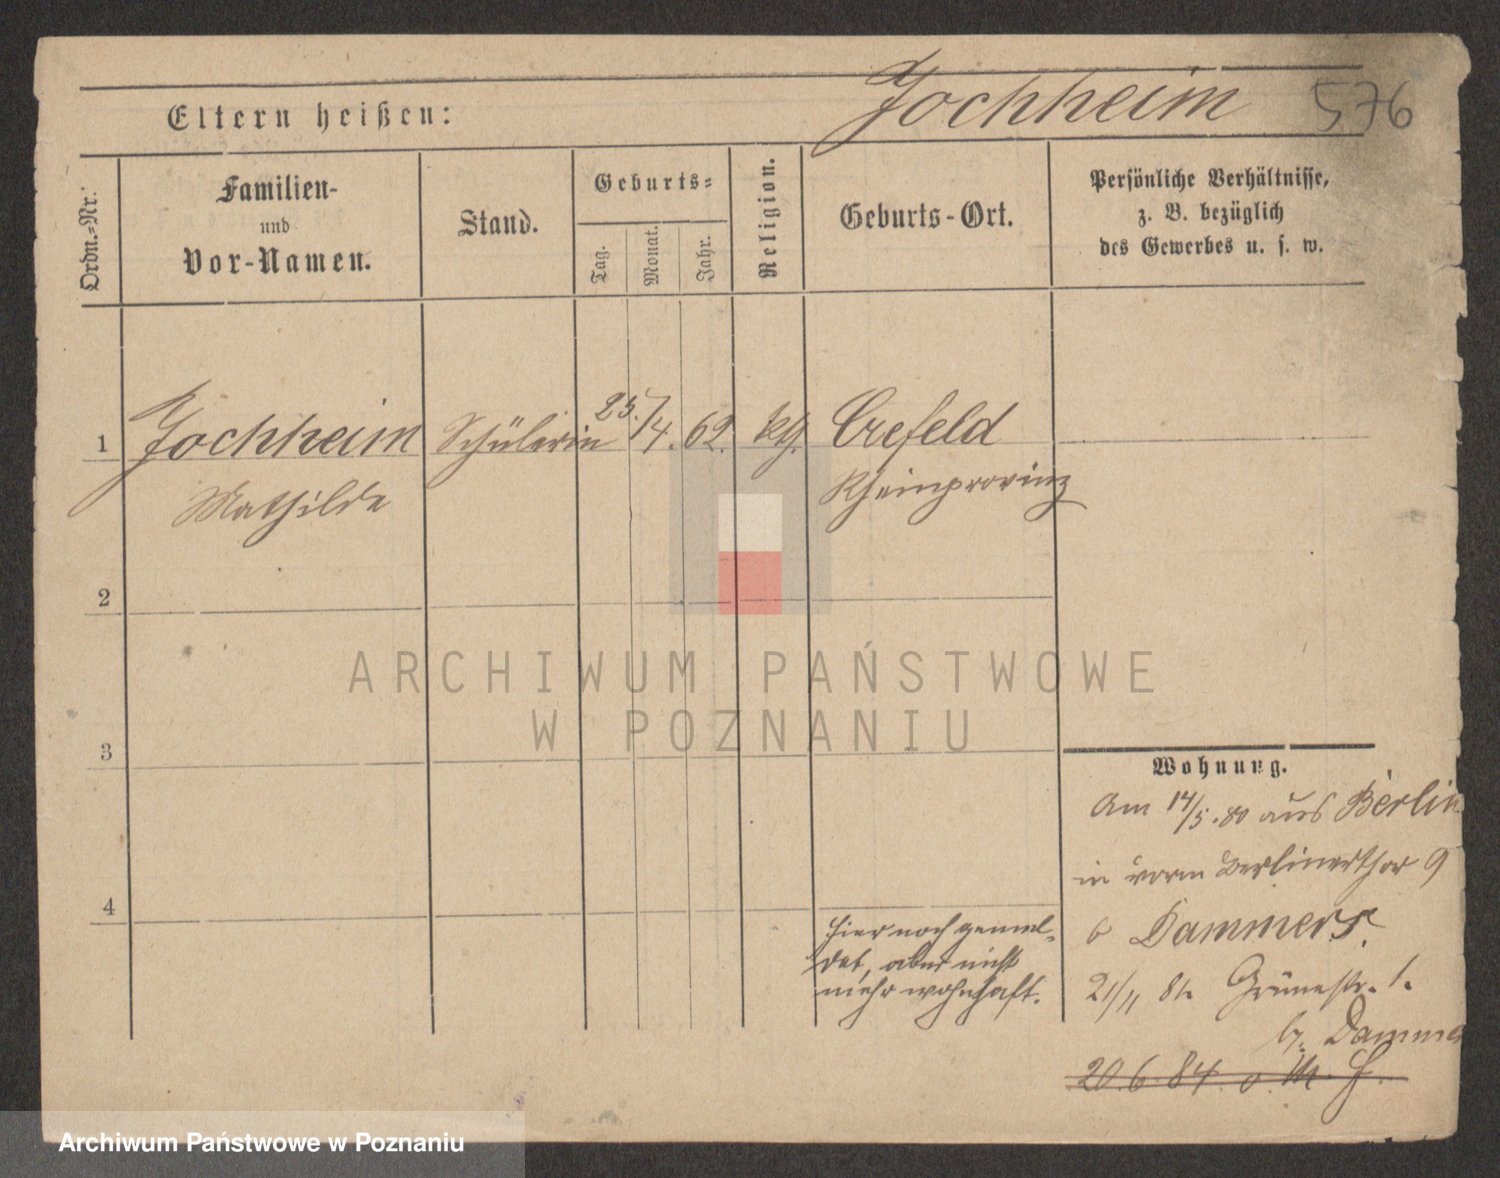 Jochheim 576
Eltern heißen:
Ordn.-Nr.
Familien-
und
Vor-Namen.
Stand.
Geburts-
Tag.
Monat.
Jahr.
Religion.
Geburts-Ort.
Persönliche Verhältnisse,
z. B. bezüglich
des Gewerbes u. s. w.
1 Jochheim Schülerin 25./4. 62. kth. Crefeld
Mathilde Rheinprovinz
2
3
4
ARCHIWUM PAŃSTWOWE
W POZNANIU
hier noch gemel-
det, aber nicht
mehr wohnhaft.
Wohnung.
Am 14/5. 80 aus Berlin
in vorm Berlinerthor 9
b Dammers.
21/11 81. Grünestr. 1.
b.
20.6.84.
Archiwum Państwowe w Poznaniu